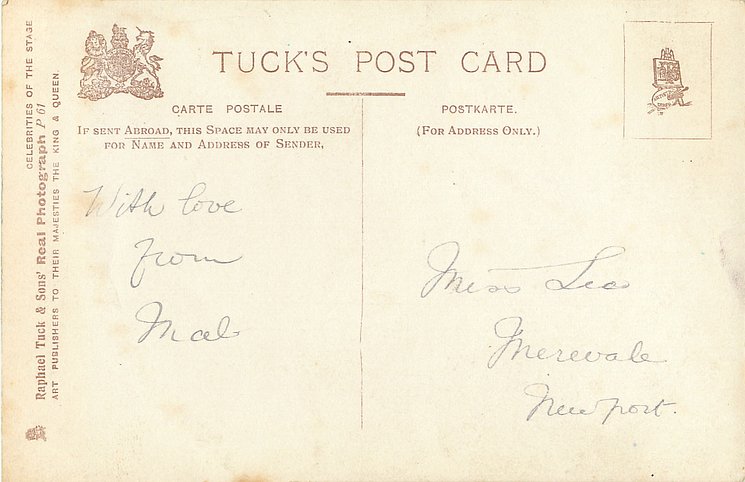 TUCK'S POST CARD
CARTE POSTALE
POSTKARTE.
IF SENT ABROAD, THIS SPACE MAY ONLY BE USED
FOR NAME AND ADDRESS OF SENDER,
(FOR ADDRESS ONLY.)
With love
from
Mab
Miss Lea
Merevale
Newport.
CELEBRITIES OF THE STAGE
Raphael Tuck & Sons' Real Photograph P 61
ART PUBLISHERS TO THEIR MAJESTIES THE KING & QUEEN.